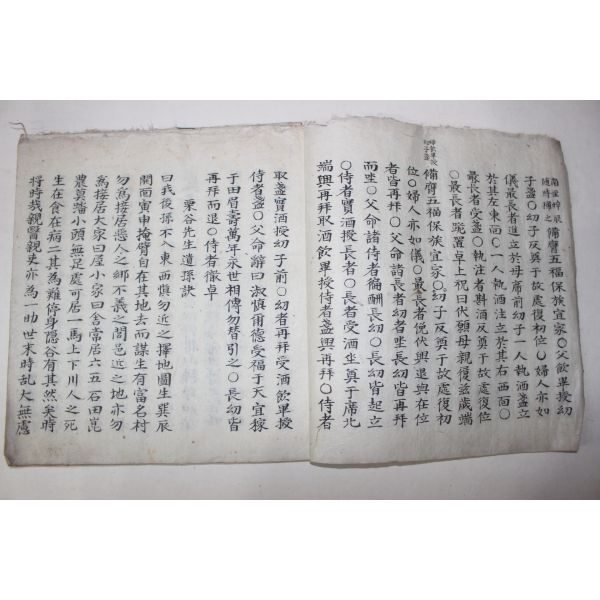 備膺五福保族宜家○父飮畢授幼
子盞○幼子反奠于故處復初位○婦人亦如
儀最長者進立於母席前幼子一人執酒盞立
於其左東面○一人執酒注立於其右西面○
最長者受盞○執注者斟酒反奠于故處復位
○最長者跪置卓上祝曰伏願母親復玆歲端
備膺五福保族宜家○幼子反奠于故處復初
位○婦人亦如儀○最長者俛伏興退與在位
者皆再拜○父命諸長者幼者坐長幼皆再拜
而坐○父命諸侍者徧酬長幼○長幼皆起立
○侍者實酒授長者○長者受酒坐奠于席北
端興再拜取酒飮畢授侍者盞興再拜○侍者
取盞實酒授幼子前○幼者再拜受酒飮畢授
侍者盞○父命辭曰淑愼爾德受福于天宜稼
于田眉壽萬年永世相傳勿替引之○長幼皆
再拜而退○侍者徹卓
栗谷先生遺孫訣
曰我後孫不入東西愼勿近之擇地圖生巽辰
間面寅申掩臂自在其地去而謀生有富名村
勿爲接居惡人之鄉不義之間邑近之地亦勿
爲接居大家曰屋小家曰舍常居六五石田崑
農莫潘小頭無足處可居一馬上下川人之死
生在食在病二其爲難停身隱谷有其然矣時
將時哉親賢親史亦爲一助世末時乱大無慮